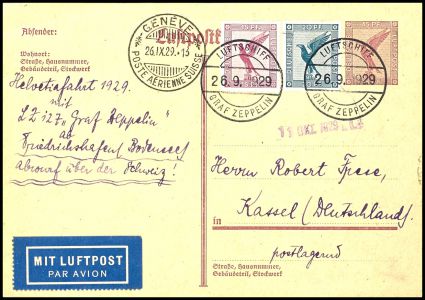 Absender:
Wohnort:
Straße, Hausnummer,
Gebäudeteil, Stockwerk
Luftpost
GENÈVE
26.IX.29.-13
POSTE AÉRIENNE SUISSE
15 PF.
20 PF.
15
LUFTSCHIFF
26.9.1929
GRAF ZEPPELIN
LUFTSCHIFF
26.9.1929
GRAF ZEPPELIN
Helvetiafahrt 1929
mit
LZ 127 "Graf Zeppelin"
ab
Friedrichshafen/Bodensee
Abwurf über der Schweiz!
11 OKT. 1929
Herrn Robert
Kassel (Deutschland).
in
postlagernd
Straße, Hausnummer,
Gebäudeteil, Stockwerk
MIT LUFTPOST
PAR AVION